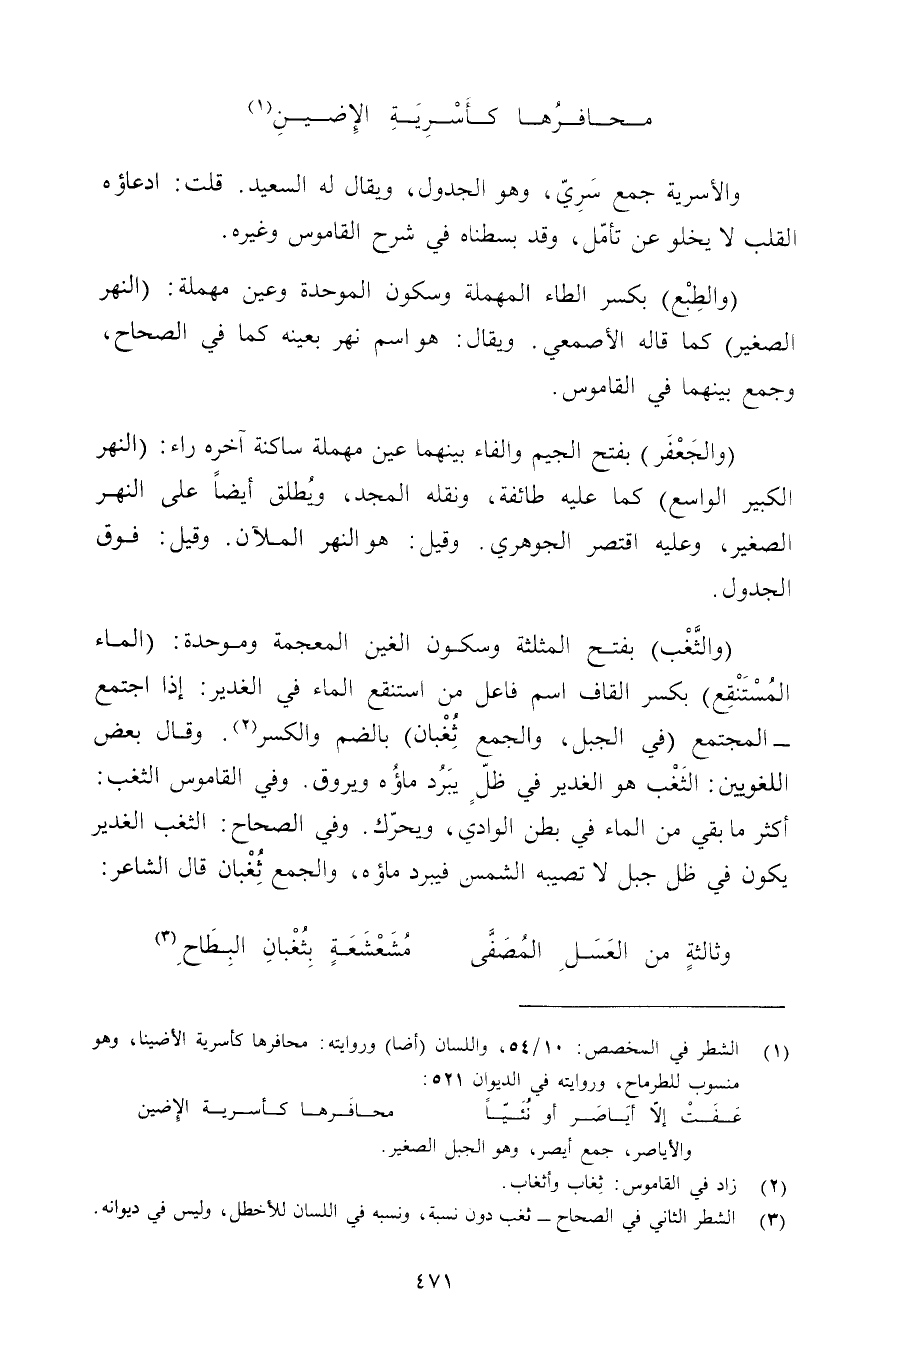 محافرُها كأَسْرِيَةِ الإِضينِ(١)
والأسرية جمع سَرِيّ، وهو الجدول، ويقال له السعيد. قلت: ادعاؤه
القلب لا يخلو عن تأمّل، وقد بسطناه في شرح القاموس وغيره.
(والطِبْع) بكسر الطاء المهملة وسكون الموحدة وعين مهملة: (النهر
الصغير) كما قاله الأصمعي. ويقال: هو اسم نهر بعينه كما في الصحاح،
وجمع بينهما في القاموس.
(والجَعْفَر) بفتح الجيم والفاء بينهما عين مهملة ساكنة آخره راء: (النهر
الكبير الواسع) كما عليه طائفة، ونقله المجد، ويُطلق أيضاً على النهر
الصغير، وعليه اقتصر الجوهري. وقيل: هو النهر الملآن. وقيل: فوق
الجدول.
(والثَّغْب) بفتح المثلثة وسكون الغين المعجمة وموحدة: (الماء
المُسْتَنْقِع) بكسر القاف اسم فاعل من استنقع الماء في الغدير: إذا اجتمع
ـ المجتمع (في الجبل، والجمع ثُِغْبان) بالضم والكسر(٢). وقال بعض
اللغويين: الثَغْب هو الغدير في ظلّ يَبَرُد ماؤُه ويروق. وفي القاموس الثغب:
أكثر ما بقي من الماء في بطن الوادي، ويحرّك. وفي الصحاح: الثغب الغدير
يكون في ظل جبل لا تصيبه الشمس فيبرد ماؤه، والجمع ثُِغْبان قال الشاعر:
وثالثةٍ من العَسَلِ المُصَفَّى مُشَعْشَعَةٍ بِثُغْبانِ البِطَاحِ(٣)
(١) الشطر في المخصص: ٥٤/١٠، واللسان (أضا) وروايته: محافرها كأسرية الأضينا، وهو
منسوب للطرماح، وروايته في الديوان ٥٢١:
عَفَتْ إلاّ أيَاصَر أو نُئَيّاً محافَرها كأسرية الإضين
والأياصر، جمع أيصر، وهو الجبل الصغير.
(٢) زاد في القاموس: ثِغاب وأثغاب.
(٣) الشطر الثاني في الصحاح ـ ثغب دون نسبة، ونسبه في اللسان للأخطل، وليس في ديوانه.
٤٧١